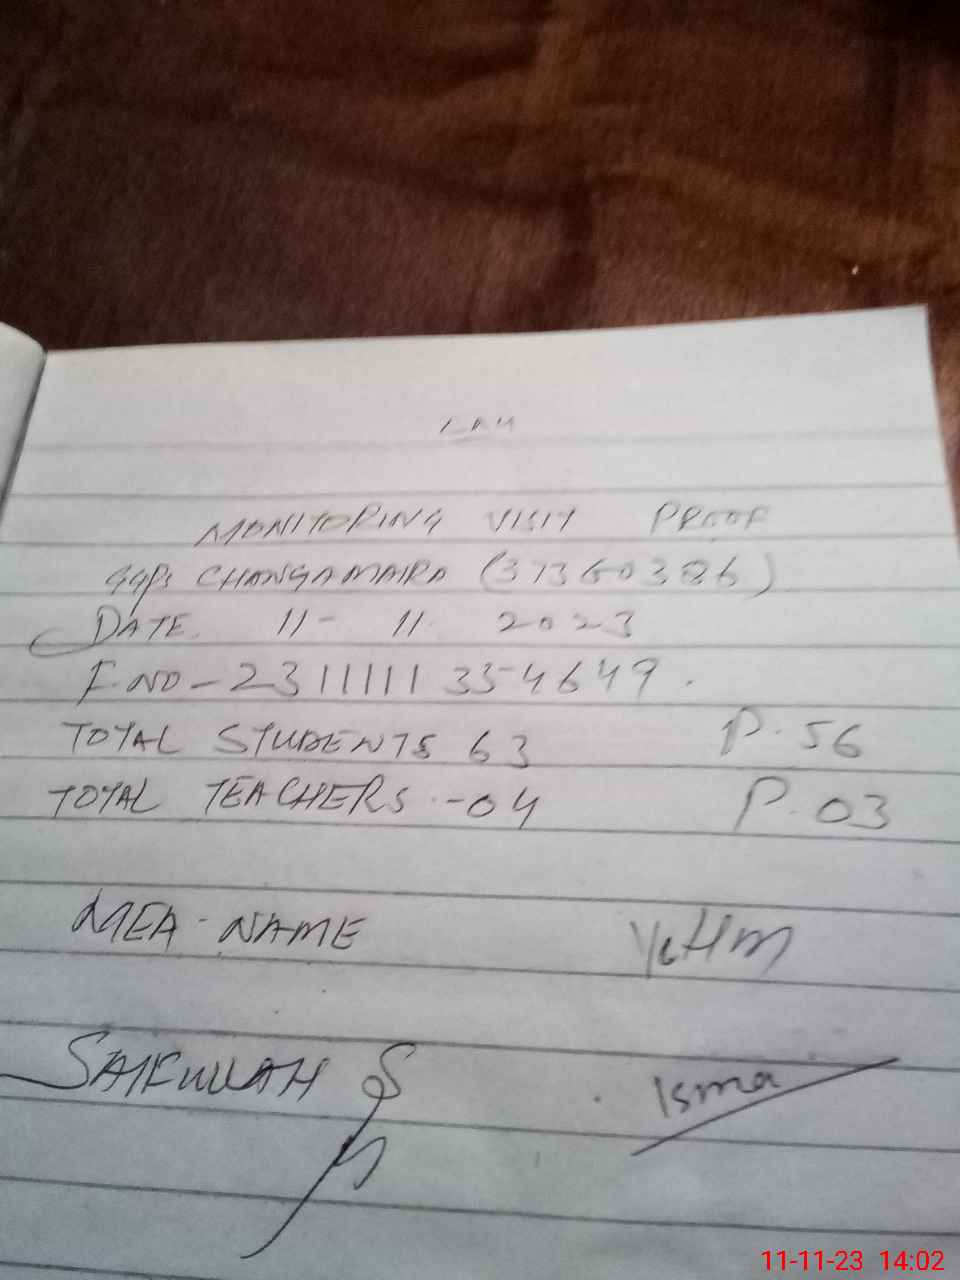 MONITORING VISIT PROOF
GGPS CHANGAMAIRA (37360386)
DATE. 11- 11. 2023
F.NO-23111113354649.
TOTAL STUDENTS 63 P.56
TOTAL TEACHERS.-04 P.03
MEA-NAME
SAIFULLAH
Isma
11-11-23 14:02